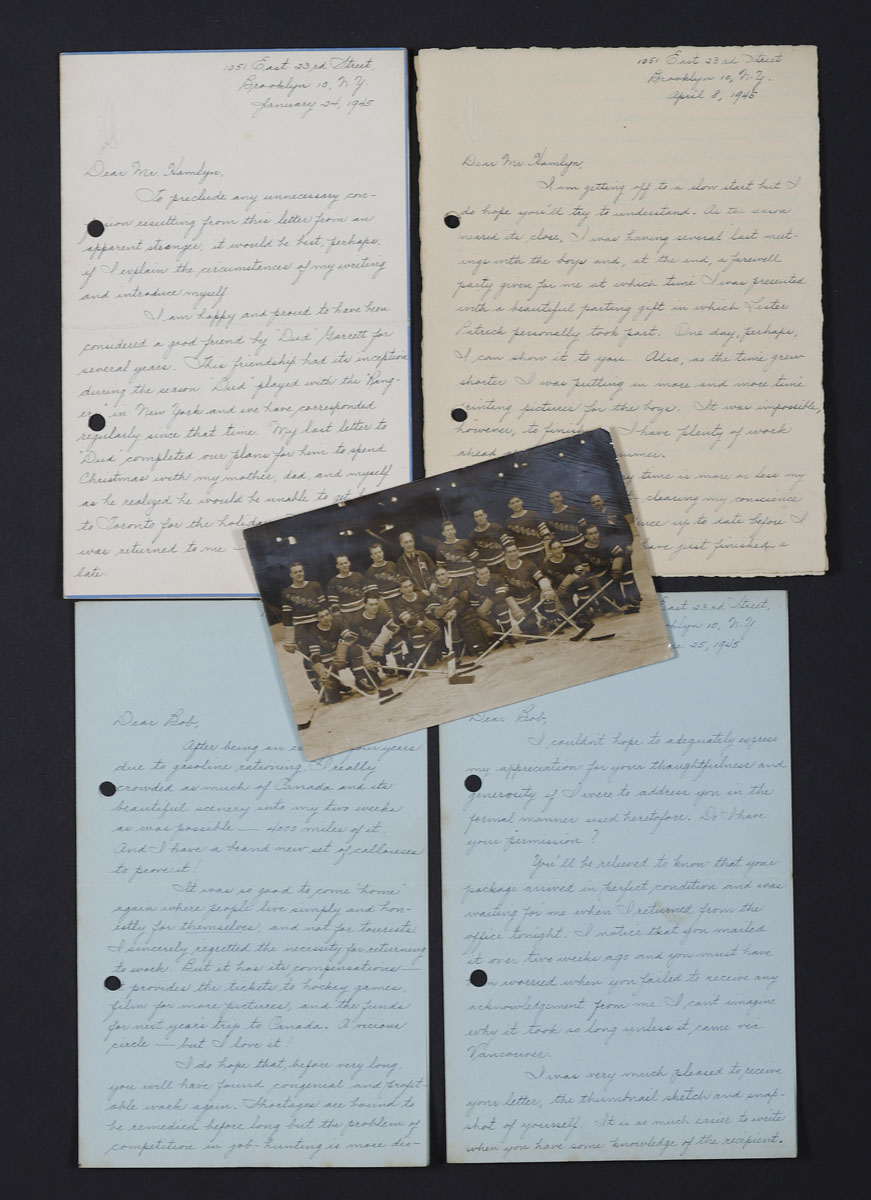 1251 East 23rd Street,
Brooklyn 10, N.Y.
January 24, 1945
Dear Mr Hamlyn,
To preclude any unnecessary con-
sion resulting from this letter from an
apparent stranger, it would be best, perhaps,
if I explain the circumstances of my writing
and introduce myself.
I am happy and proud to have been
considered a good friend by "Dud" Garrett for
several years. This friendship had its inception
during the season "Dud" played with the "Rang-
ers" in New York and we have corresponded
regularly since that time. My last letter to
"Dud" completed our plans for him to spend
Christmas with my mother, dad, and myself
as he realized he would be unable to get
to Toronto for the holiday
was returned to me —
late.
1051 East 23rd Street
Brooklyn 10, N.Y.
April 8, 1945
Dear Mr Hamlyn,
I am getting off to a slow start but I
do hope you'll try to understand. As the season
neared its close, I was having several last meet-
ings with the boys and, at the end, a farewell
party given for me at which time I was presented
with a beautiful parting gift in which Lester
Patrick personally took part. One day, perhaps,
I can show it to you. Also, as the time grew
shorter I was putting in more and more time
printing pictures for the boys. It was impossible,
however, to finish I have plenty of work
ahead summer.
time is more or less my
clearing my conscience
up to date before I
have just finished a
Dear Bob,
After being an years
due to gasoline rationing I really
crowded as much of Canada and its
beautiful scenery into my two weeks
as was possible — 4000 miles of it.
And I have a brand new set of callouses
to prove it!
It was so good to come "home"
again where people live simply and hon-
estly for themselves, and not for tourists.
I sincerely regretted the necessity for returning
to work. But it has its compensations —
it provides the tickets to hockey games,
film for more pictures, and the funds
for next year's trip to Canada. A vicious
circle — but I love it!
I do hope that, before very long,
you will have found congenial and profit-
able work again. Shortages are bound to
be remedied before long but the problem of
competition in job-hunting is more dis-
East 23rd Street,
klyn 10, N.Y.
25, 1945
Dear Bob,
I couldn't hope to adequately express
my appreciation for your thoughtfulness and
generosity if I were to address you in the
formal manner used heretofore. Do I have
your permission?
You'll be relieved to know that your
package arrived in perfect condition and was
waiting for me when I returned from the
office tonight. I notice that you mailed
it over two weeks ago and you must have
worried when you failed to receive any
acknowledgement from me. I can't imagine
why it took so long unless it came via
Vancouver.
I was very much pleased to receive
your letter, the thumbnail sketch and snap-
shot of yourself. It is so much easier to write
when you have some knowledge of the recipient.